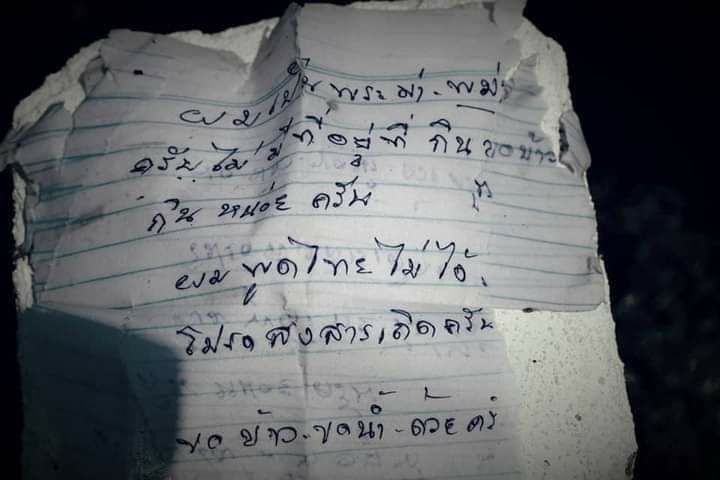 ผมเป็นพระม่า-พม่า
ครับไม่มีที่อยู่ที่กินขอข้าว
กินหน่อยครับ
ผมพูดไทยไม่ได้.
โปรดสงสารเถิดครับ
ขอข้าว-ขอน้ำ-ด้วยครั